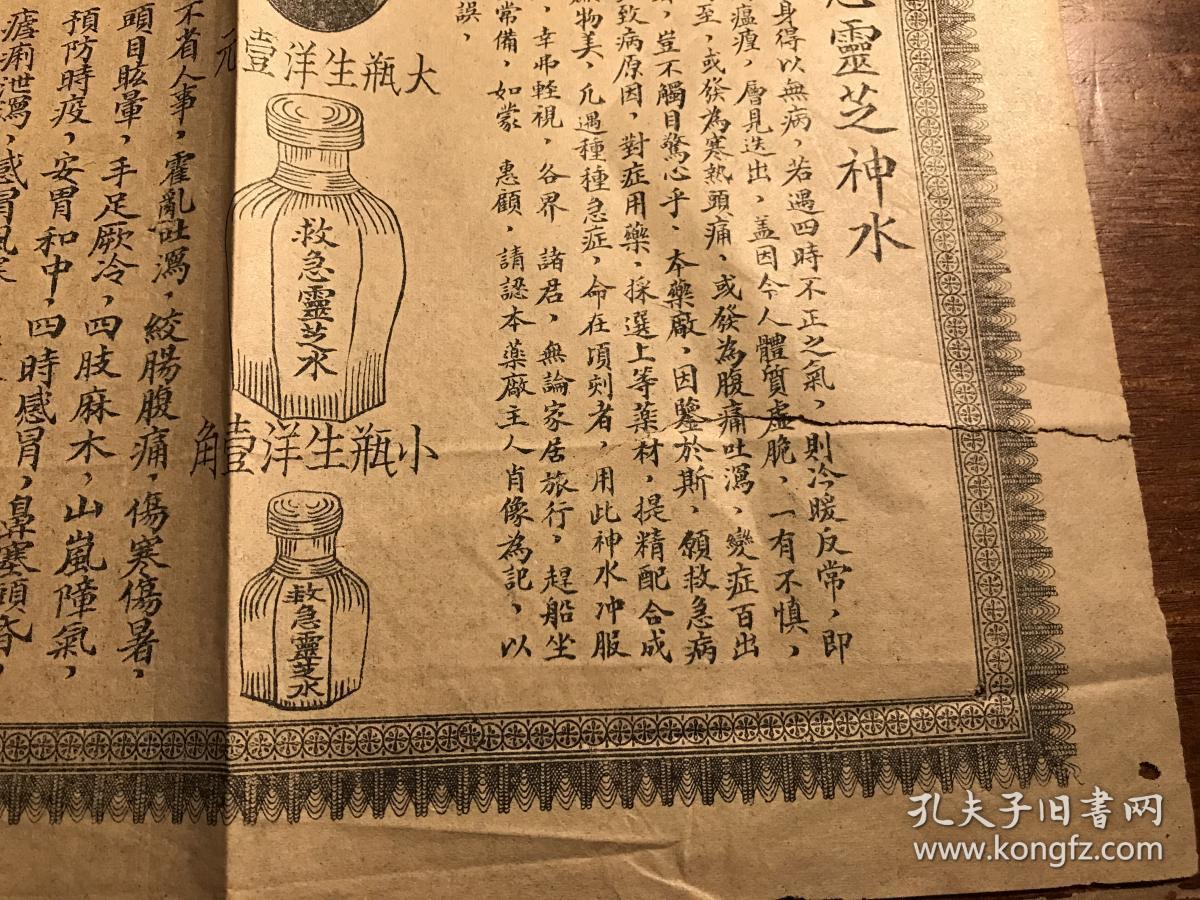 急靈芝神水
身得以無病，若遇四時不正之氣，則冷暖反常，即
瘟疫，層見迭出，蓋因今人體質虛脆，一有不慎，
至，或發為寒熱頭痛，或發為腹痛吐瀉，變症百出
豈不觸目驚心乎、本藥廠，因鑒於斯，領救急病
致病原因，對症用藥，採選上等藥材，提精配合成
物美、凢遇種種急症，命在頃刻者，用此神水冲服
，幸弗輕視，各界 諸君，無論家居旅行，趕船坐
常備，如蒙 惠顧，請認本藥廠主人肖像為記，以
誤，
大瓶生洋壹元
救急靈芝水
小瓶生洋壹角
救急靈芝水
不省人事，霍亂吐瀉，絞腸腹痛，傷寒傷暑，
頭目眩暈，手足厥冷，四肢麻木，山嵐障氣，
預防時疫，安胃和中，四時感冒，鼻塞頭昏，
瘧痢泄瀉，感冒風
孔夫子旧书网
www.kongfz.com